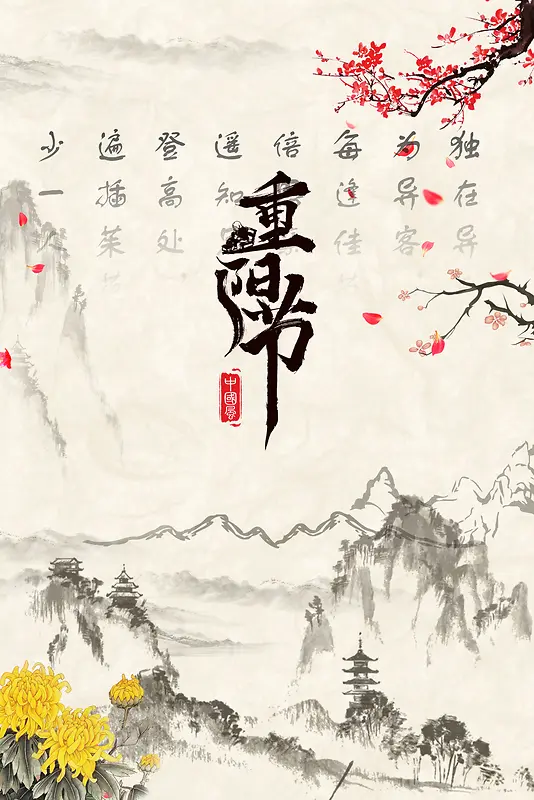 独在异
为异客
每逢佳
倍
遥知
登高处
遍插茱
少一人
重阳节
中國風